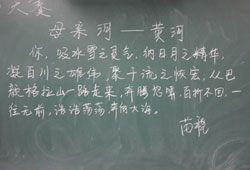 大寨
母亲河——黄河
你，吸冰雪之灵气，纳日月之精华，
凝百川之雄伟，聚千流之恢宏，从巴
颜格拉山一路走来，奔腾怒啸，百折不回，一
往无前，浩浩荡荡，奔然大海。
苗艳